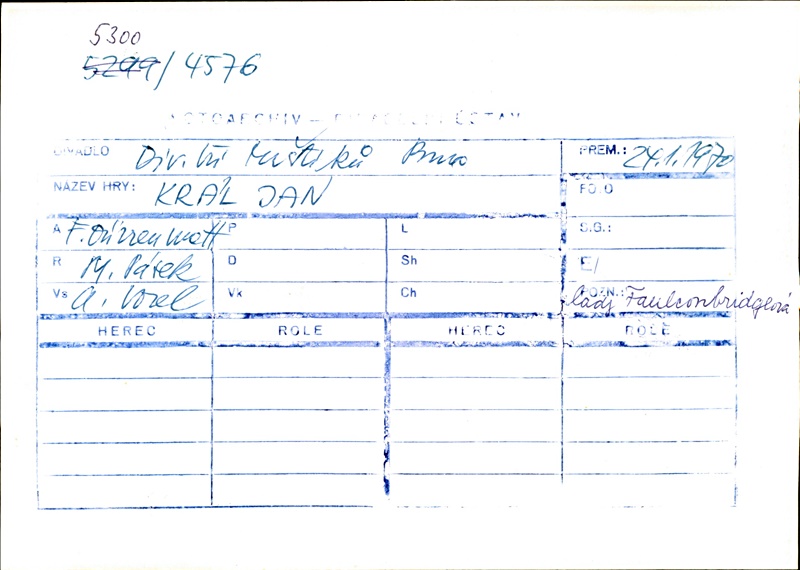 5300
5299/4576
FOTOARCHIV – DIVADELNÍ ÚSTAV
DIVADLO Div. bří Mrštíků Brno PREM.: 24.1.1970
NÁZEV HRY: KRÁL JAN FOTO
A F. Dürrenmatt P L S.G.:
R M. Pásek D Sh E/
Vs A. Vorel Vk Ch POZN.: lady Faulconbridgeová
HEREC ROLE HEREC ROLE